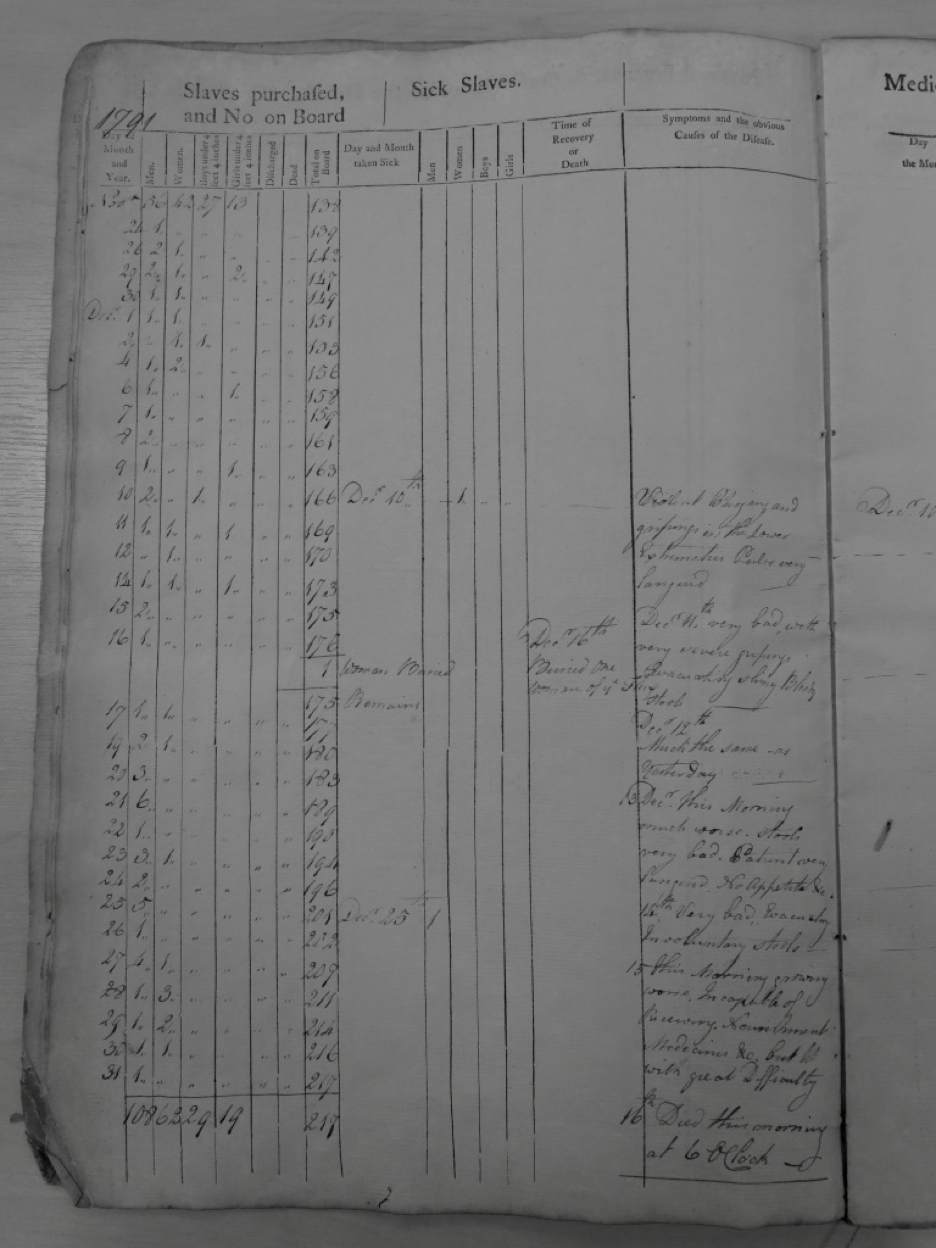 Slaves purchased, and No on Board
Sick Slaves.
Medic
1791
Day Month and Year.
Men.
Women.
Boys under 4 feet 4 inches
Girls under 4 feet 4 inches
Discharged
Dead
Total on Board
Day and Month taken Sick
Men
Women
Boys
Girls
Time of Recovery or Death
Symptoms and the obvious Causes of the Disease.
Day
the Mon
42 27 13 " " 138
24 1. " " " " 139
26 2 1. " " 142
29 2. 1. " 2. " " 147
30 1. 1. " " " " 149
Decr. 1 1. 1. " " " " 151
2. " 1. 1. " " " 153
4 1. 2. " " " " 156
6 1. " " 1. " " 158
7 1. " " " " " 159
8 2. " " " " " 161
9 1. " " 1. " " 163
10 2. " 1. " " " 166 Decr. 10th " 1. " "
11 1. 1. " 1 " " 169
12 " 1. " " " " 170
14 1. 1. " 1. " " 173
15 2. " " " " " 175
16 1. " " " " " 176
1 Woman Buried
175 Remains
17 1. 1. " " " " 177
19 2 1. " " " " 180
20 3. " " " " " 183
21 6. " " " " " 189
22 1. " " " " " 190
23 3. 1. " " " " 194
24 2. " " " " " 196
25 5. " " " " " 201 Decr. 25th 1
26 1. " " " " " 202
27 4. 1. " " " " 207
28 1. 3. " " " " 211
29 1. 2. " " " " 214
30 1. 1. " " " " 216
31 1. " " " " " 217
108 62 29 19 217
Decr 16th
Buried one
woman of ye Flux
Violent and
gripings in the Lower
Extremities Pulse very
languid
Decr 11th very bad, with
very severe gripings
Evacuating slimy Bloody
stools
Decr 12th
Much the same as
Yesterday
13 Decr. this Morning
much worse. Stools
very bad. Patient very
languid. No Appetite &c.
14th. Very bad, Evacuatg
Involuntary stools
15 this Morning growing
worse, Incapable of
Receiving Nourishment
Medicines &c. but
with great Difficulty
16th Died this morning
at 6 O'Clock
Decr. 10